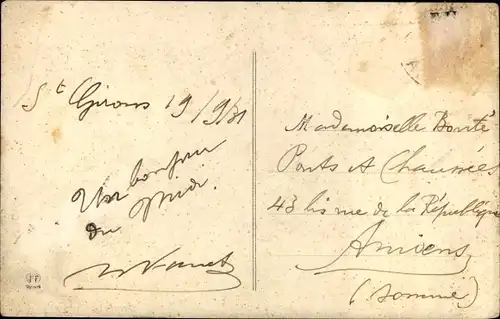 St Girons 19/9/31
Un bonjour
du Midi.
Mademoiselle Bonté
Ponts et Chaussées
43 bis rue de la République
Amiens
(Somme)